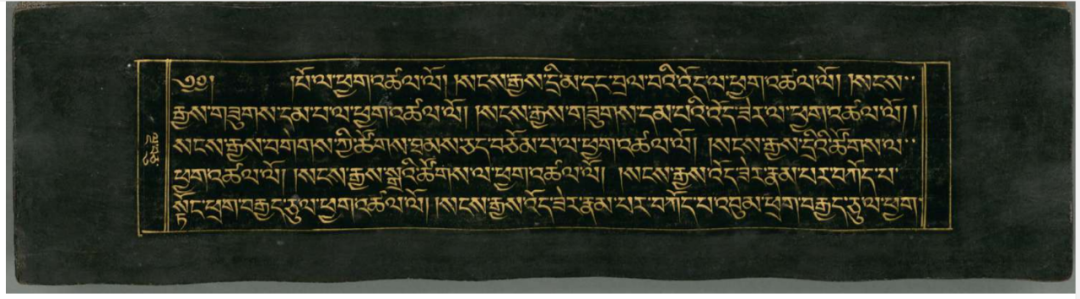 ༄༅། །པོ་ལ་ཕྱག་འཚལ་ལོ། །སངས་རྒྱས་དྲི་མ་དང་བྲལ་བའི་འོད་ལ་ཕྱག་འཚལ་ལོ། །སངས་
རྒྱས་གཟུགས་དམ་པ་ལ་ཕྱག་འཚལ་ལོ། །སངས་རྒྱས་གཟུགས་དམ་པའི་འོད་ཟེར་ལ་ཕྱག་འཚལ་ལོ། །
སངས་རྒྱས་བགེགས་ཀྱི་ཚོགས་ཐམས་ཅད་བཅོམ་པ་ལ་ཕྱག་འཚལ་ལོ། །སངས་རྒྱས་དྲིའི་ཚོགས་ལ་
ཕྱག་འཚལ་ལོ། །སངས་རྒྱས་སྒྲའི་ཚོགས་ལ་ཕྱག་འཚལ་ལོ། །སངས་རྒྱས་འོད་ཟེར་རྣམ་པར་བཀོད་པ་
སྟོང་ཕྲག་བརྒྱད་ཅུ་ལ་ཕྱག་འཚལ་ལོ། །སངས་རྒྱས་འོད་ཟེར་རྣམ་པར་བཀོད་པ་འབུམ་ཕྲག་བརྒྱད་ཅུ་ལ་ཕྱག་